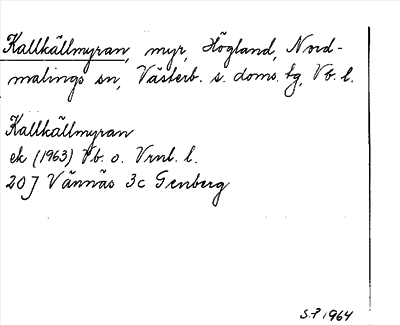 Kallkällmyran, myr, Högland, Nord-
malings sn, Västerb. s. doms. tg, Vb. l.
Kallkällmyran
ek (1963) Vb. o. Vrnl. l.
20 J Vännäs 3c Genberg
S.P. 1964